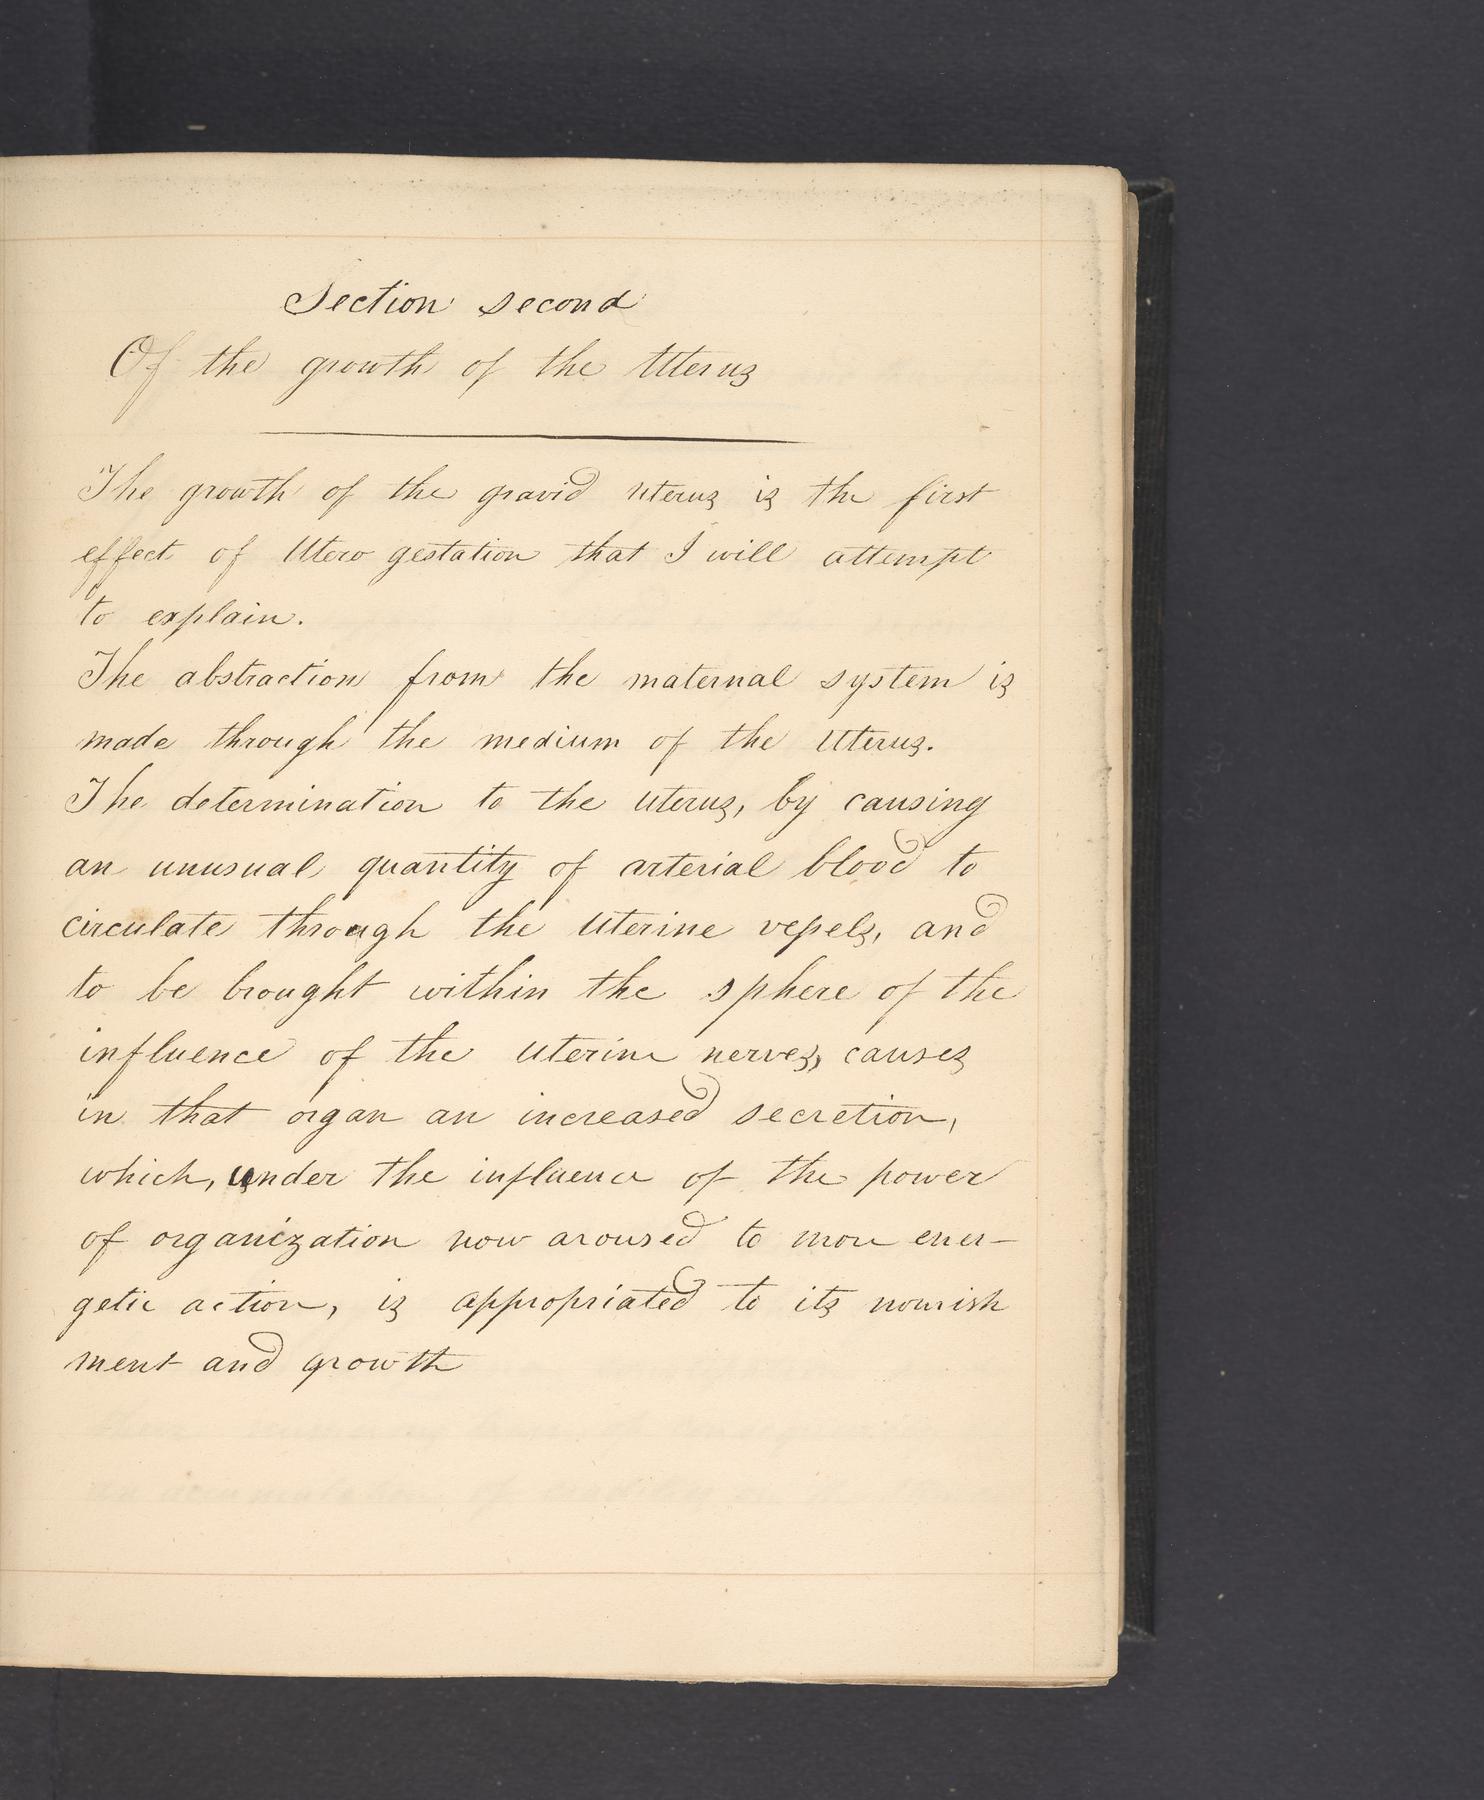 Section second
Of the growth of the Uterus
The growth of the gravid uterus is the first
effect of Utero gestation that I will attempt
to explain.
The abstraction from the maternal system is
made through the medium of the Uterus.
The determination to the uterus, by causing
an unusual quantity of arterial blood to
circulate through the Uterine vessels, and
to be brought within the sphere of the
influence of the uterine nerves, causes
in that organ an increased secretion,
which, under the influence of the power
of organization now aroused to more ener-
getic action, is appropriated to its nourish
ment and growth